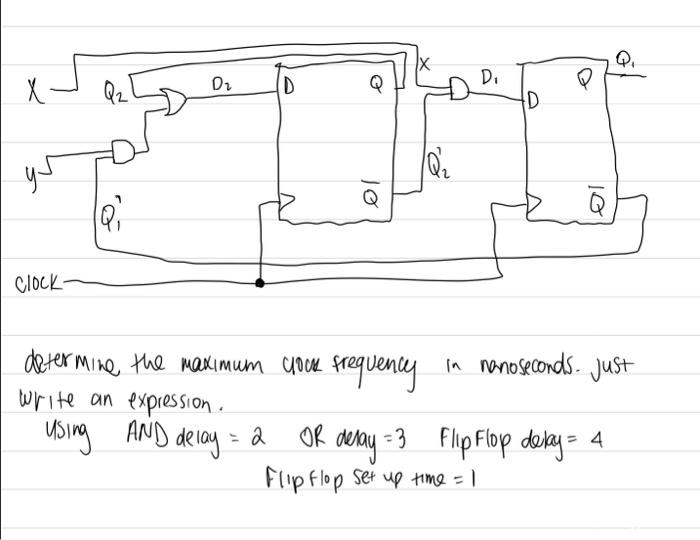 X
Q2
D2
D
Q
X
D1
D
Q
Q1
y
Q1'
Q̅
Q2'
Q̅
Clock
determine the maximum clock frequency in nanoseconds. Just
write an expression.
Using AND delay = 2 OR delay = 3 Flip Flop delay = 4
Flip flop set up time = 1